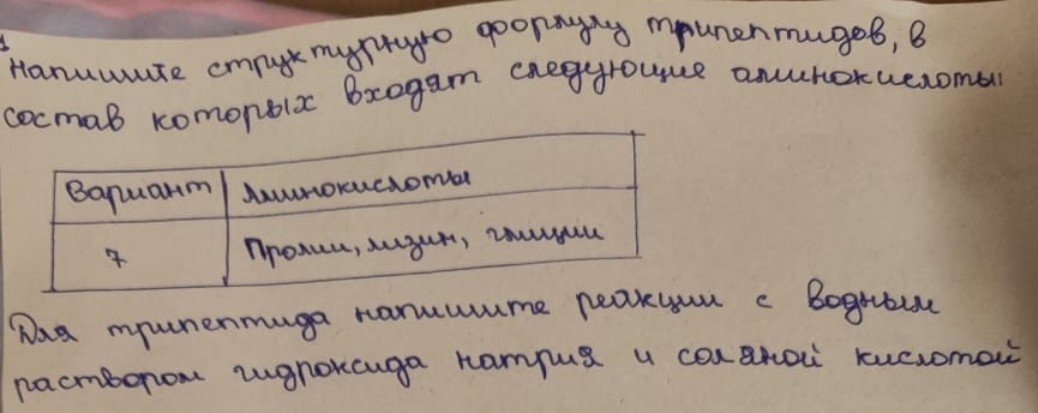 1
Напишите структурную формулу трипептидов, в
состав которых входят следующие аминокислоты:
Вариант Аминокислоты
7 Пролин, лизин, глицин
Для трипептида напишите реакции с водным
раствором гидроксида натрия и соляной кислотой